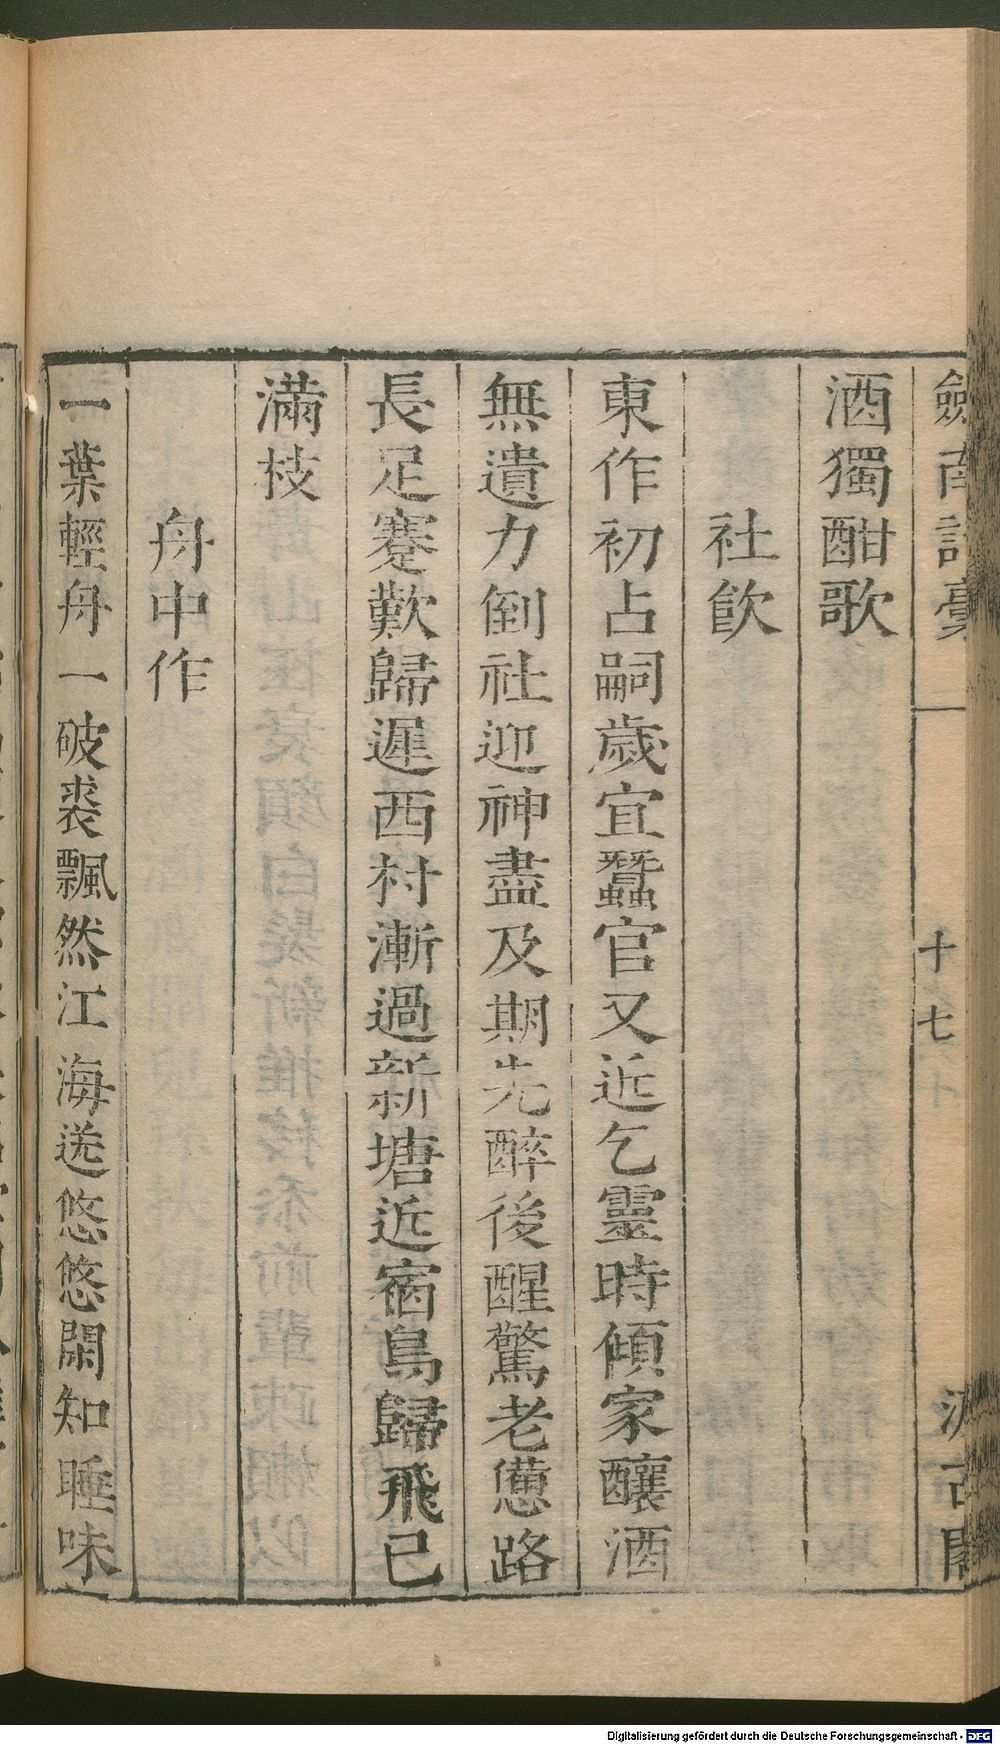 劍南詩稾
十七
汲古閣
酒獨酣歌
社飮
東作初占嗣歲宜蠶官又近乞靈時傾家釀酒
無遺力倒社迎神盡及期先醉後醒驚老憊路
長足蹇歎歸遲西村漸過新塘近宿鳥歸飛已
滿枝
舟中作
一葉輕舟一破裘飄然江海送悠悠閑知睡味
Digitalisierung gefördert durch die Deutsche Forschungsgemeinschaft - DFG